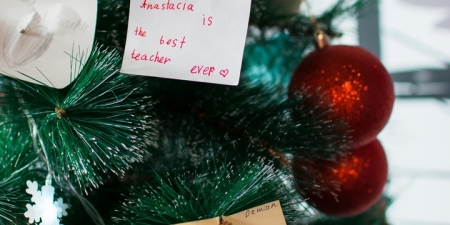 Anastacia is
the best
teacher
ever ♡
Demon